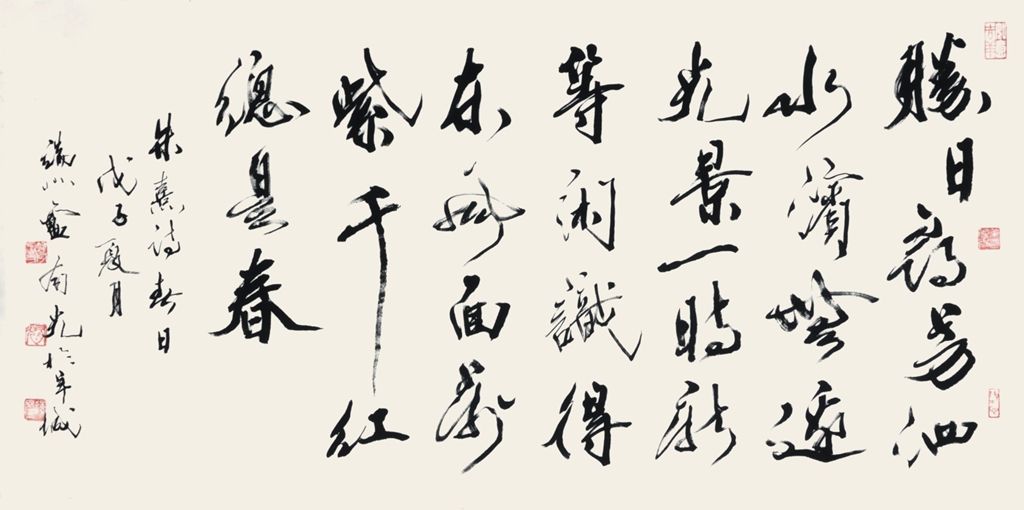 勝日尋芳泗
水濱無邊
光景一時新
等閑識得
東風面萬
紫千紅
總是春
朱熹詩春日
戊子夏月
光於羊城